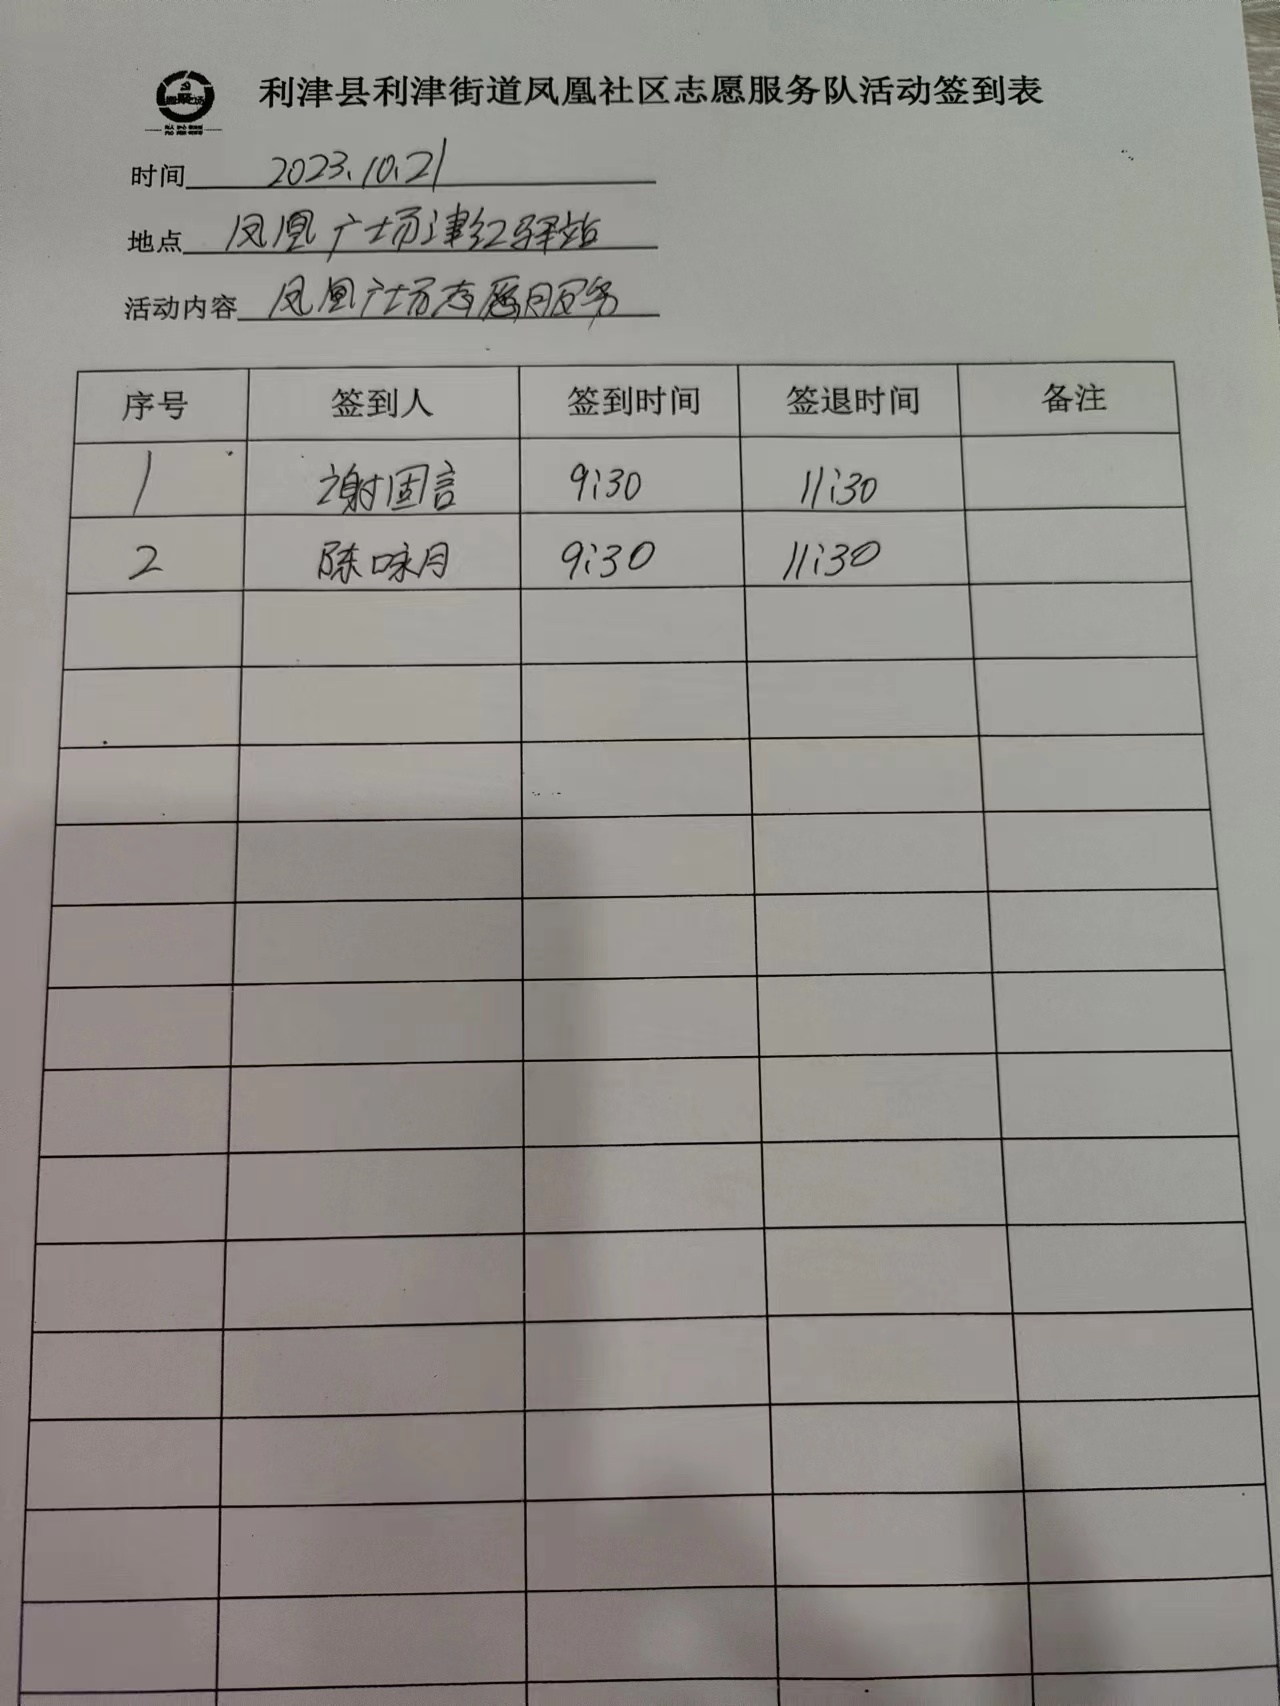 利津县利津街道凤凰社区志愿服务队活动签到表
时间 2023.10.21
地点 凤凰广场津红驿站
活动内容 凤凰广场志愿服务
序号 签到人 签到时间 签退时间 备注
1 谢固言 9:30 11:30
2 陈咏月 9:30 11:30